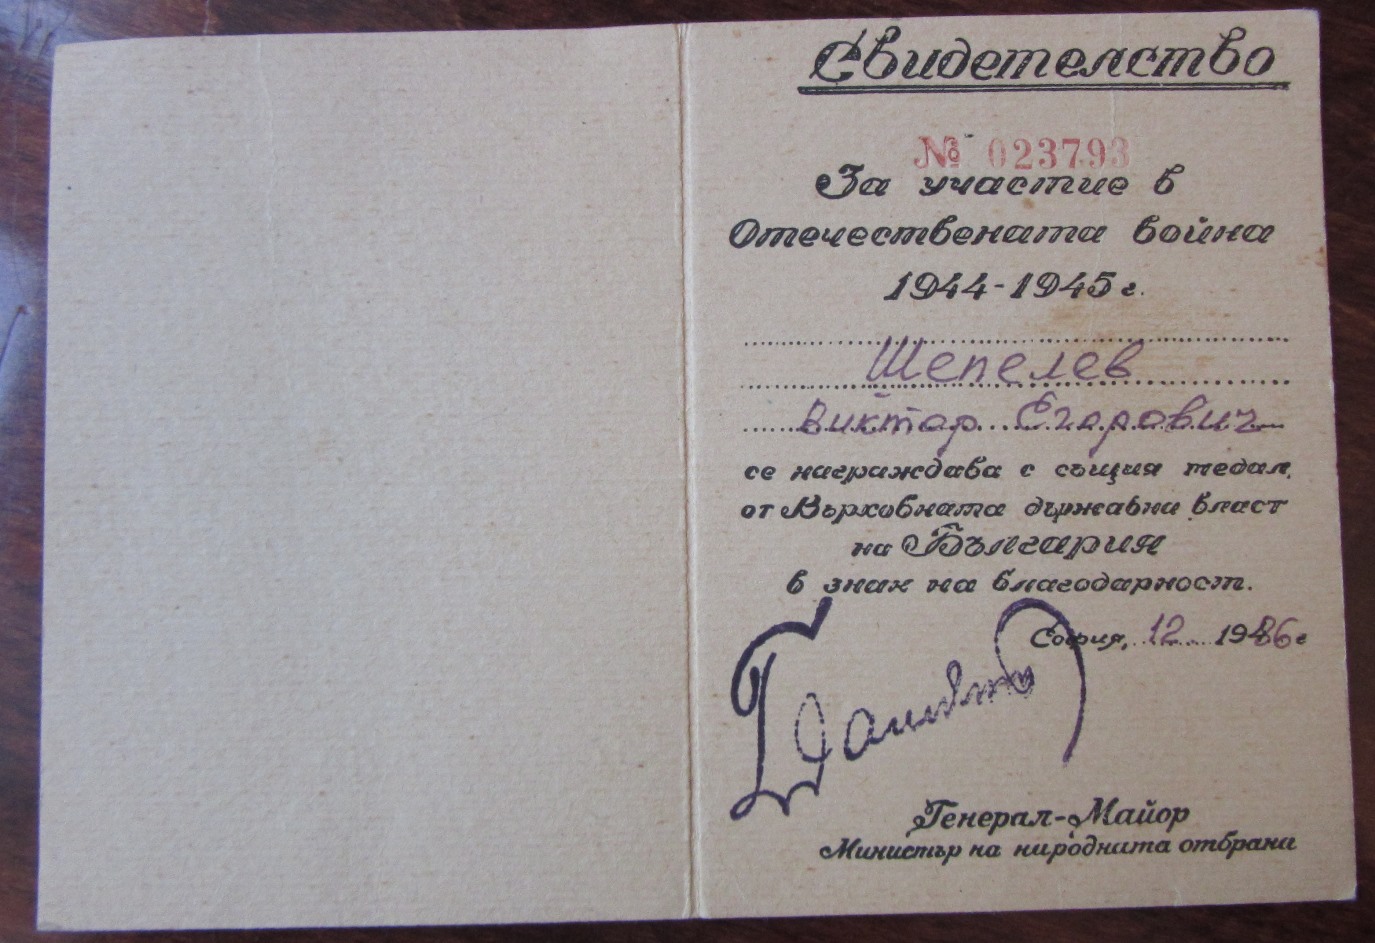 Свидетелство
№ 023793
За участие в
Отечествената война
1944-1945 г.
Шепелев
Виктор Егорович
се награждава с същия медал,
от Върховната държавна власт
на България
в знак на благодарност.
София, 12 1986 г
Генерал-Майор
Министър на народната отбрана